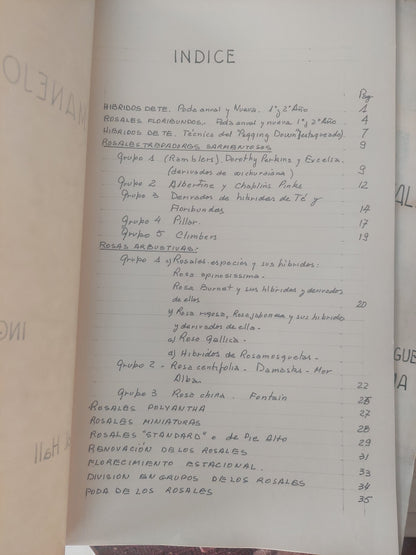 INDICE
Pág
HIBRIDOS DE TE. Poda anual y Nueva. 1º y 2º Año 1
ROSALES FLORIBUNDOS. Poda anual y nueva 1º y 2º Año 4
HIBRIDOS DE TE. Técnica del Pegging Down (estaqueado). 7
ROSALES TREPADORES SARMENTOSOS 9
Grupo 1 (Ramblers). Dorothy Perkins y Excelsa.
(derivados de wichuraiana) 9
Grupo 2 Albertine y Chaplins Pinke 12
Grupo 3 Derivados de hibridos de Té y
Floribundas 14
Grupo 4 Pillar 17
Grupo 5 Climbers 19
ROSAS ARBUSTIVAS:
Grupo 1 a) Rosales especies y sus hibridos:
Rosa spinosissima.
Rosa Burnet y sus hibridos y derivados
de ellos 20
b) Rosa rugosa, Rosa japonesa y sus hibridos
y derivados de ella.
c) Rosa Gallica.
d) Hibridos de Rosamosquetas.
Grupo 2 - Rosa centifolia. Damastus - Mor
Alba. 22
Grupo 3 Rosa china. Fontain 26
ROSALES POLYANTHA 27
ROSALES MINIATURAS 28
ROSALES "STANDARD" o de Pie Alto 29
RENOVACIÓN DE LOS ROSALES 31
FLORECIMIENTO ESTACIONAL. 33
DIVISION EN GRUPOS DE LOS ROSALES 34
PODA DE LOS ROSALES 35
MANEJO
ING
Hall
AL
GUE
MA